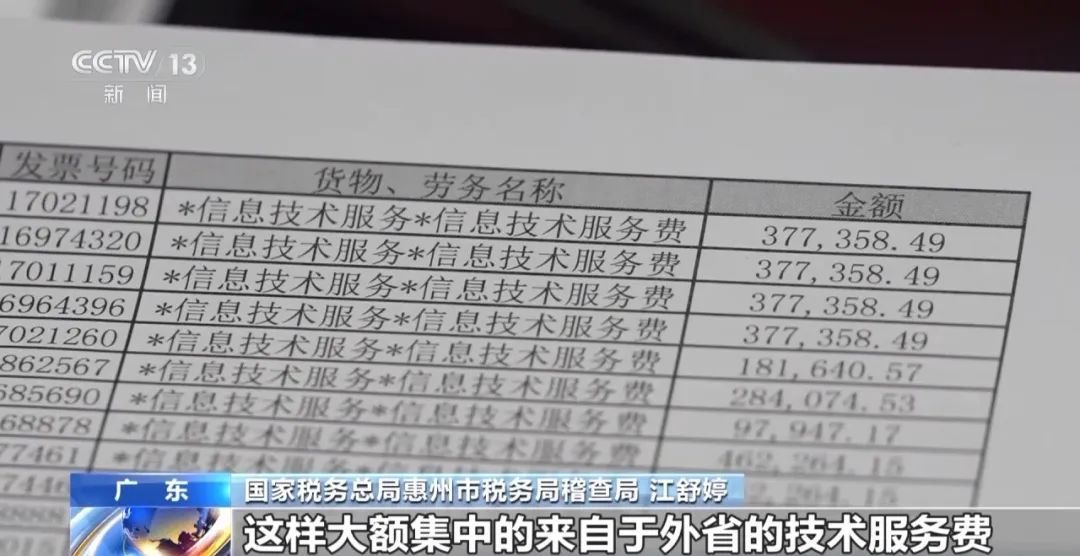 CCTV 13
新闻
发票号码 货物、劳务名称 金额
17021198 *信息技术服务*信息技术服务费 377,358.49
16974320 *信息技术服务*信息技术服务费 377,358.49
17011159 *信息技术服务*信息技术服务费 377,358.49
6964396 *信息技术服务*信息技术服务费 377,358.49
7021260 *信息技术服务*信息技术服务费 181,640.57
862567 *信息技术服务*信息技术服务费 284,074.53
685690 *信息技术服务*信息技术服务费 97,947.17
68878 *信息技术服务*信息技术服务费 462,264.15
77461 2,264.15
广东 国家税务总局惠州市税务局稽查局 江舒婷
这样大额集中的来自于外省的技术服务费